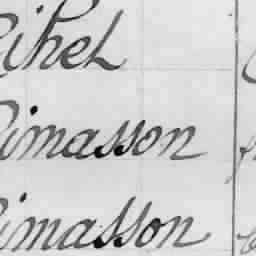 Rihel
Rimasson
Rimasson